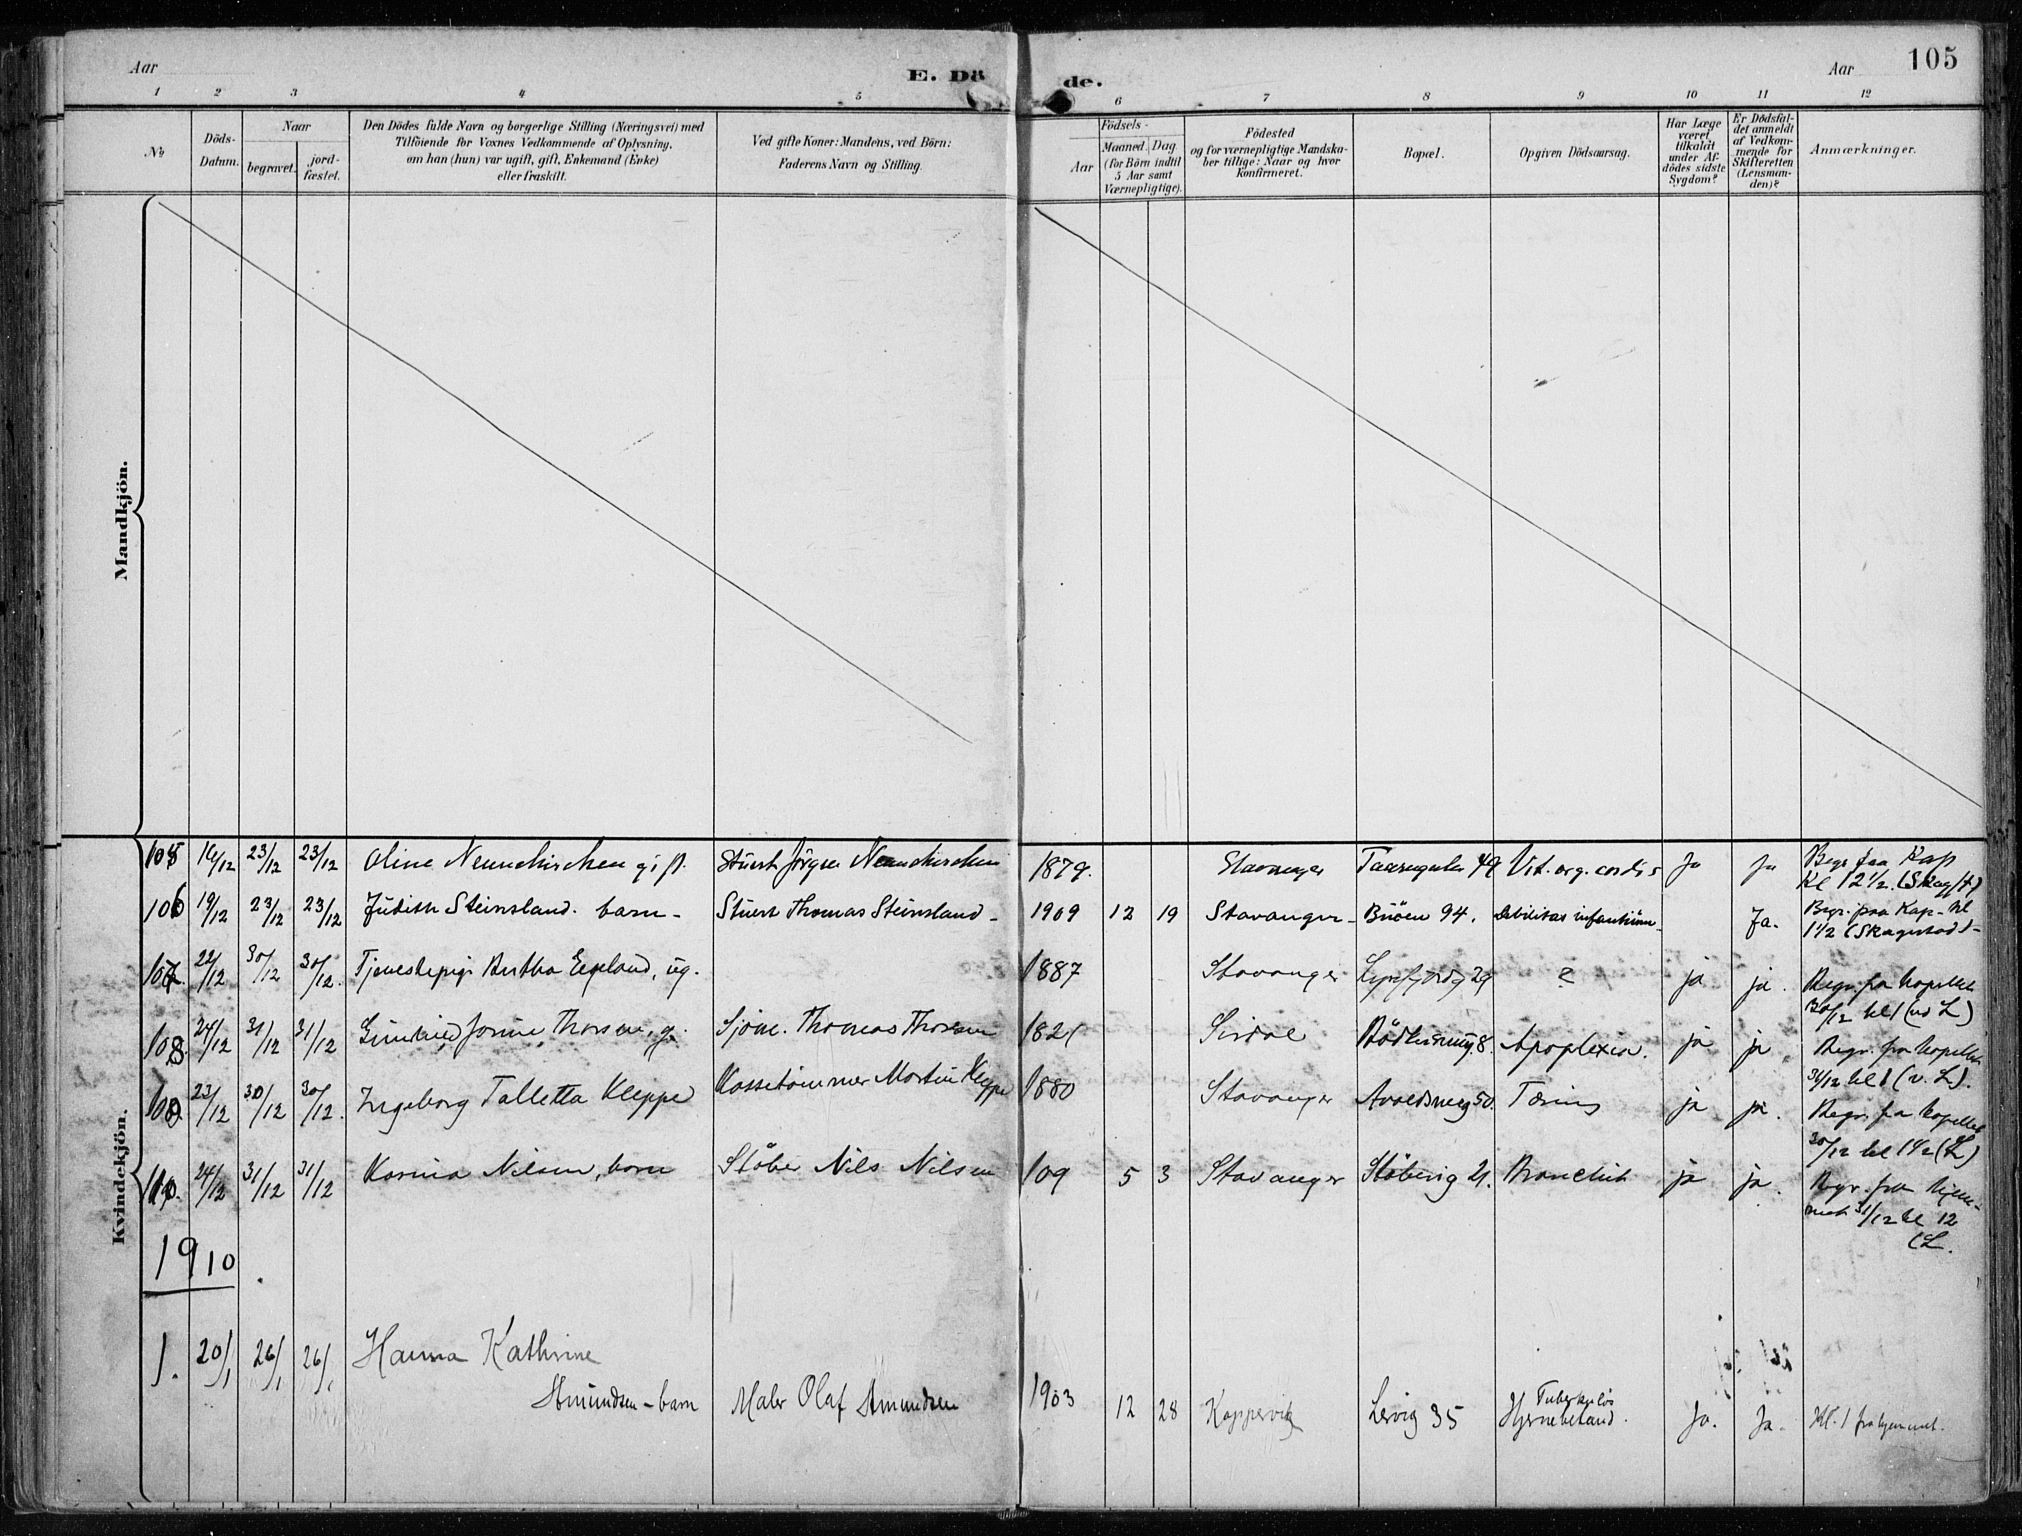 Aar
E. Dö
de.
Aar
105
1 2 3 4 5 6 7 8 9 10 11 12
No
Döds-
Datum.
Naar
begravet.
jord-
fæstet.
Den Dödes fulde Navn og borgerlige Stilling (Næringsvei) med
Tilföiende for Voxnes Vedkommende af Oplysning,
om han (hun) var ugift, gift, Enkemand (Enke)
eller fraskilt.
Ved gifte Koner: Mandens, ved Börn:
Faderens Navn og Stilling.
Födsels-
Aar
Maaned Dag
(for Börn indtil
5 Aar samt
Værnepligtige).
Födested
og for værnepligtige Mandska-
ber tillige: Naar og hvor
Konfirmeret.
Bopæl.
Opgiven Dödsaarsag.
Har Læge
været
tilkaldt
under Af-
dödes sidste
Sygdom?
Er Dödsfal-
det anmeldt
af Vedkom-
mende for
Skifteretten
(Lensman-
den)?
Anmærkninger.
Mandkjön.
Kvindekjön.
105 16/12 23/12 23/12 Oline Nennekirchen gift. Stuert Jörgen Nennekirchen 1879. Stavanger 49 Vit. org. cordis Ja Ja Begr. fra Kap
Kl 12½.
106 19/12 23/12 23/12 Judith Steinsland. barn- Stuert Thomas Steinsland- 1909 12 19 Stavanger- Buöen 94. debilitas infantium Ja. Begr. fra Kap- kl
1½
107. 22/12 30/12 30/12. Tjenestepige Bertha Egeland, ug. 1887 Stavanger 29 ? ja ja. Begr. fra kapellet
30/12 kl 1
108. 24/12 31/12 31/12 Thorsen, g. Sjöm. Thomas Thorsen 1821 Sirdal 8. Apoplexia. ja ja. Begr. fra kapellet
31/12 kl 1 (v. L).
109 23/12 30/12 30/12. Ingeborg Talletta Kleppe Kassetömmer Martin Kleppe 1880 Stavanger 50. ja ja. Begr. fra kapellet
30/12 kl 1½ (L)
110. 24/12 31/12 31/12 Karina Nilsen, barn Stöber Nils Nilsen 109 5 3 Stavanger Stöberig 21. Bronchit ja ja. Begr. fra hjem-
met 31/12 kl 12
(L.
1910.
1. 20/1 26/1 26/1 Hanna Kathrine
Amundsen - barn Maler Olaf Amundsen 1903 12 28 Koppervik Lervig 35 Tuberkulös
Hjernebetænd. Ja. Ja. Kl. 1 fra hjemmet.